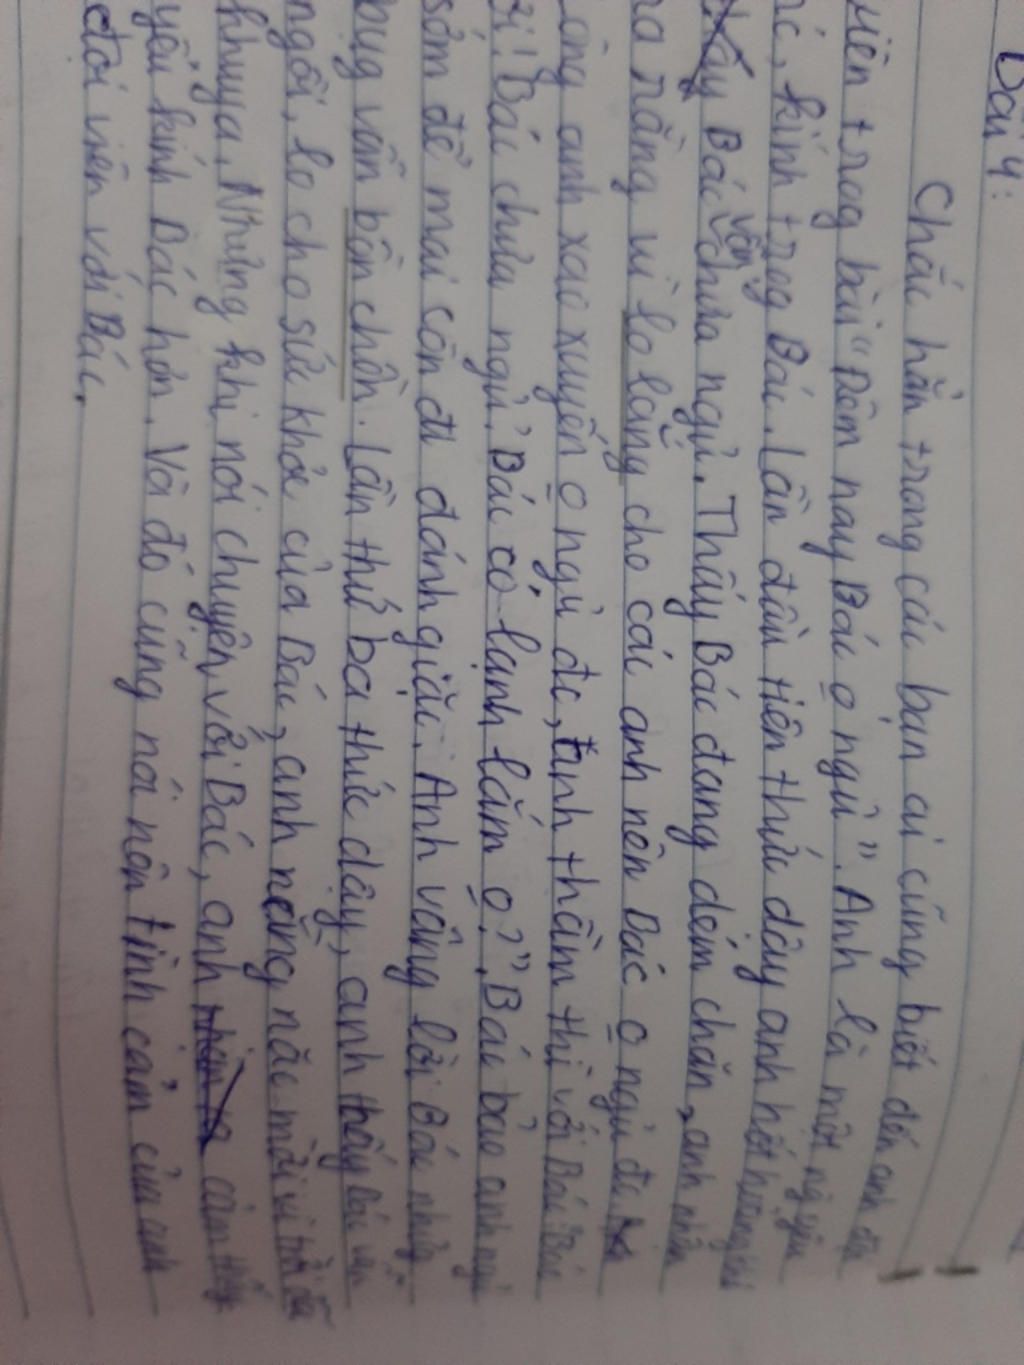 Bài 4:
Chắc hẳn trong các bạn ai cũng biết đến anh đội
viên trog bài "Đêm nay Bác o ngủ". Anh là một ng yêu
Bác, kính trog Bác. Lần đầu tiên thức dậy anh hốt hoảng khi
Bác vẫn chưa ngủ. Thấy Bác đang dém chăn, anh nhận
ra rằng vì lo lắng cho các anh nên Bác o ngủ đc
Lòng anh xao xuyến o ngủ đc, anh thầm thì với Bác "Bác
ơi! Bác chưa ngủ. Bác có lạnh lắm o?". Bác bảo anh ngủ
sớm để mai còn đi đánh giặc. Anh vâng lời Bác nhưng
bụng vẫn bồn chồn. Lần thứ ba thức dậy, anh thấy Bác vẫn
ngồi, lo cho sức khỏe của Bác, anh nằng nặc mời vì trời đã
khuya. Nhưng khi nói chuyện với Bác, anh cảm thấy
yêu kính Bác hơn. Và đó cũng nói nên tình cảm của anh
đội viên với Bác.